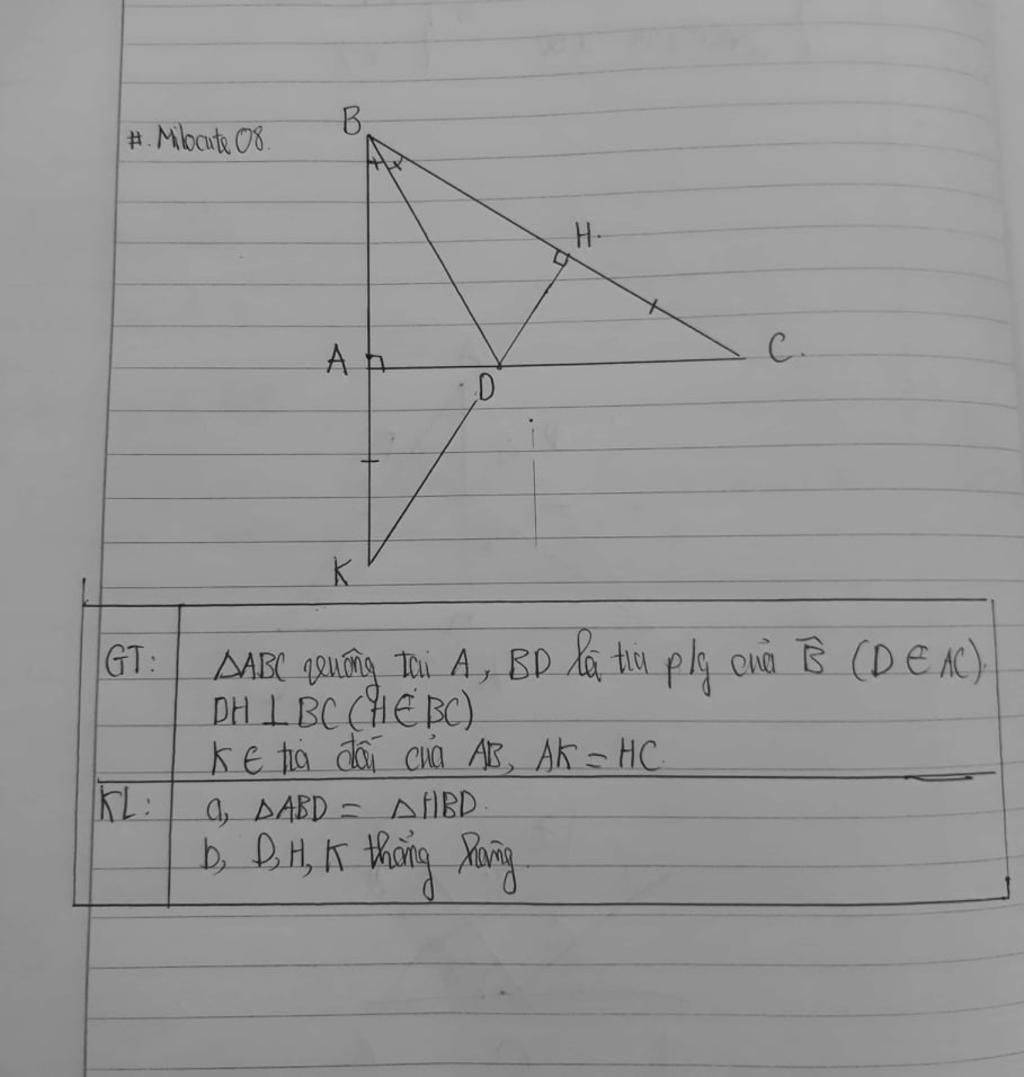 #. Milocute 08.
B
H.
A
C.
D
K
GT: ΔABC vuông tại A, BD là tia p/g của B̂ (D ∈ AC).
DH ⊥ BC (H ∈ BC)
K ∈ tia đối của AB, AK = HC
KL: a, ΔABD = ΔHBD.
b, D, H, K thẳng hàng.